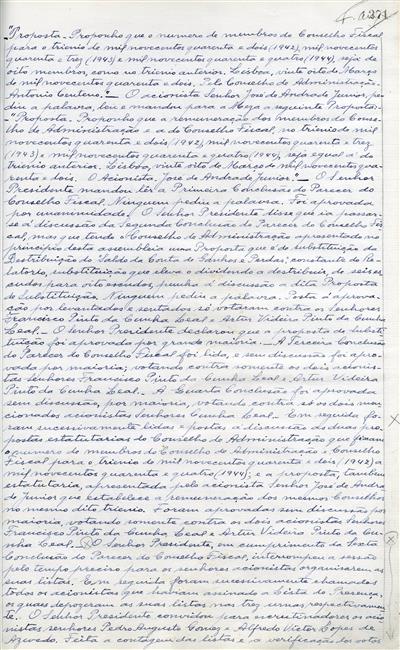 "Proposta. Proponho que o numero de membros do Conselho Fiscal
para o trienio de mil novecentos quarenta e dois (1942), mil novecentos
quarenta e trez (1943) e mil novecentos e quarenta e quatro (1944), seja de
oito membros, como no trienio anterior. Lisboa, vinte oito de Março
de mil novecentos quarenta e dois. Pelo Conselho de Administração,
Antonio Centeno." — O acionista Senhor José de Andrade Junior, pe-
diu a palavra, leu e mandou para a Meza a seguinte Proposta:-
"Proposta. Proponho que a remuneração dos membros do Conse-
lho de Administração e a do Conselho Fiscal, no trienio de mil
novecentos quarenta e dois (1942), mil novecentos quarenta e trez
(1943) e mil novecentos e quarenta e quatro (1944), seja egual á do
trienio anterior. Lisboa, vinte oito de Março de mil novecentos qua-
renta e dois. O Acionista, José de Andrade Junior." — O Senhor
Presidente mandou lêr a Primeira Conclusão do Parecer do
Conselho Fiscal. Ninguem pediu a palavra. Foi aprovada
por unanimidade. O Senhor Presidente disse que ia passar-
se á discussão da Segunda Conclusão do Parecer do Conselho Fis-
cal, mas que tendo o Conselho de Administração apresentado no
principio desta assembleia uma Proposta que é de substituição da
Distribuição do Saldo da Conta de Ganhos e Perdas, constante do Re-
latorio, substituição que eleva o dividendo a destribuir, de seis es-
cudos para oito escudos, punha á discussão a dita Proposta
de Substituição. Ninguem pediu a palavra. Posta á aprova-
ção por levantados e sentados só votaram contra os Senhores
Francisco Pinto da Cunha Leal e Artur Videira Pinto da Cunha
Leal. — O Senhor Presidente declarou que a proposta de substi-
tuição foi aprovada por grande maioria. — A Terceira Conclusão
do Parecer do Conselho Fiscal foi lida, e sem discussão foi apro-
vada por maioria; votando contra somente os dois acionis-
tas Senhores Francisco Pinto da Cunha Leal e Artur Videira
Pinto da Cunha Leal. — A Quarta Conclusão foi aprovada
sem discussão, por maioria, votando contra só os dois men-
cionados acionistas Senhores Cunha Leal. — Em seguida fo-
ram sucessivamente lidas e postas á discussão as duas pro-
postas estatutarias do Conselho de Administração que fixam
o numero de membros do Conselho de Administração e Conselho
Fiscal para o trienio de mil novecentos quarenta e dois (1942) a
mil novecentos e quarenta e quatro (1944); e a proposta, tambem
estatutaria, apresentada pelo acionista Senhor José de Andra-
de Junior que estabelece a remuneração dos mesmos Conselhos
no mesmo dito trienio. Foram aprovadas sem discussão por
maioria, votando somente contra os dois acionistas Senhores
Francisco Pinto da Cunha Leal e Artur Videira Pinto da Cu-
nha Leal. — O Senhor Presidente, em cumprimento da Sexta
Conclusão do Parecer do Conselho Fiscal, interrompeu a sessão
pelo tempo preciso para os senhores acionistas organisarem as
suas listas. Em seguida foram sucessivamente chamados
todos os acionistas que haviam assinado a Lista de Presença,
os quais depozeram as suas listas nas trez urnas, respectivamen-
te. — O Senhor Presidente convidou para escrutinadores os acio-
nistas senhores Pedro Augusto Gomes e Alfredo Victor Lopes de
Azevedo. Feita a contagem das listas e a verificação dos votos